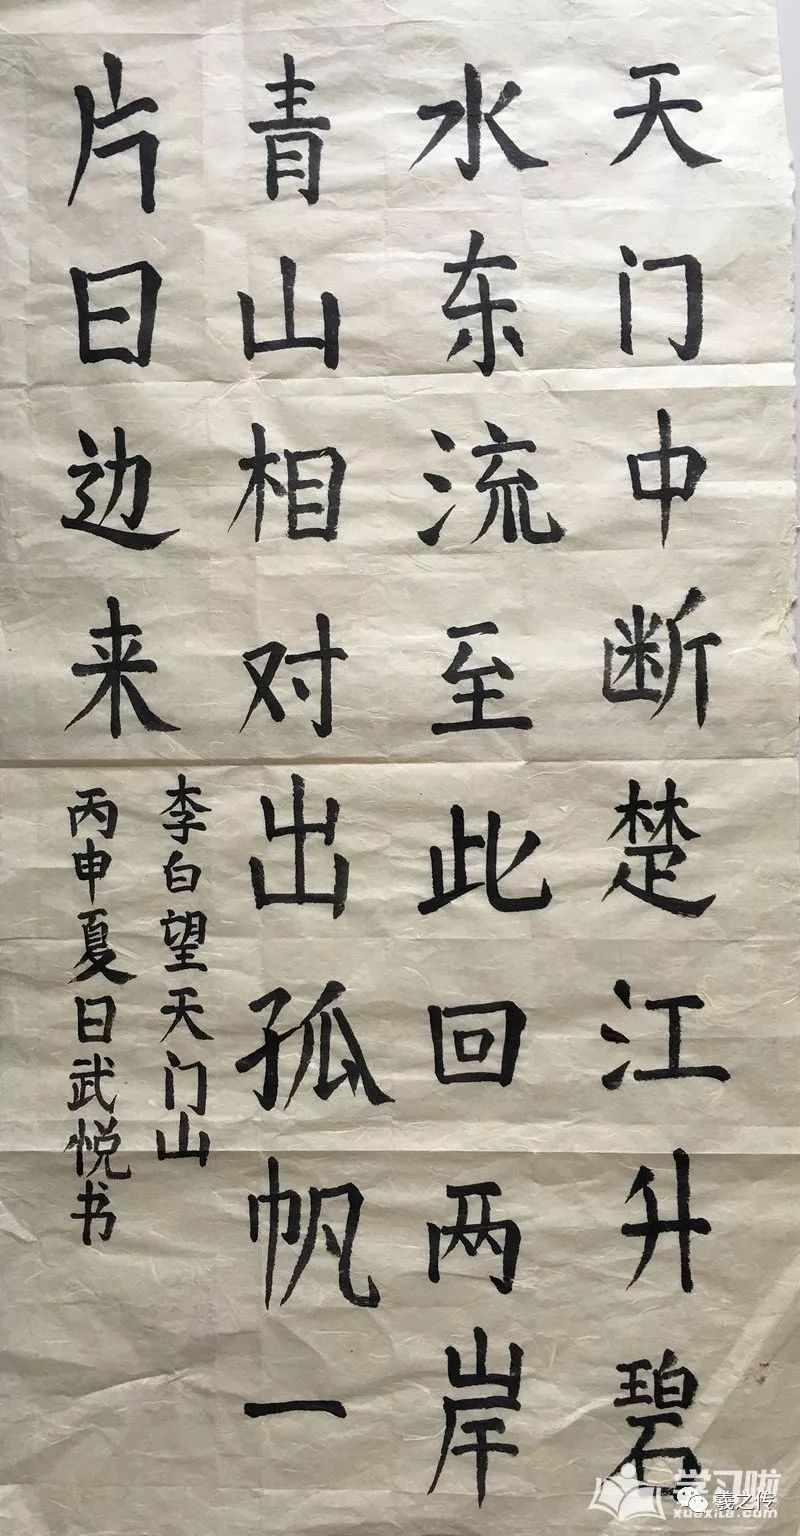 天门中断楚江升碧
水东流至此回两岸
青山相对出孤帆一
片日边来
李白望天门山
丙申夏日武悦书
学习啦
xuexila.com
羲之传